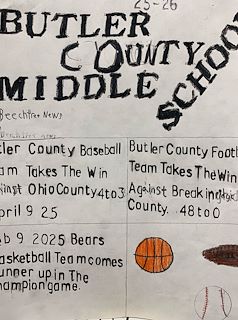 25-26
BUTLER
COUNTY
MIDDLE
SCHOO
Beechtree News
Beechtree news
tler County Baseball
am Takes The Win
ainst Ohio County 4to3
pril 9 25
Butler County Footl
Team Takes The Win
Against Breckinridge
County. 48to0
b 9 2025 Bears
asketball Team comes
unner up in The
hampion game.